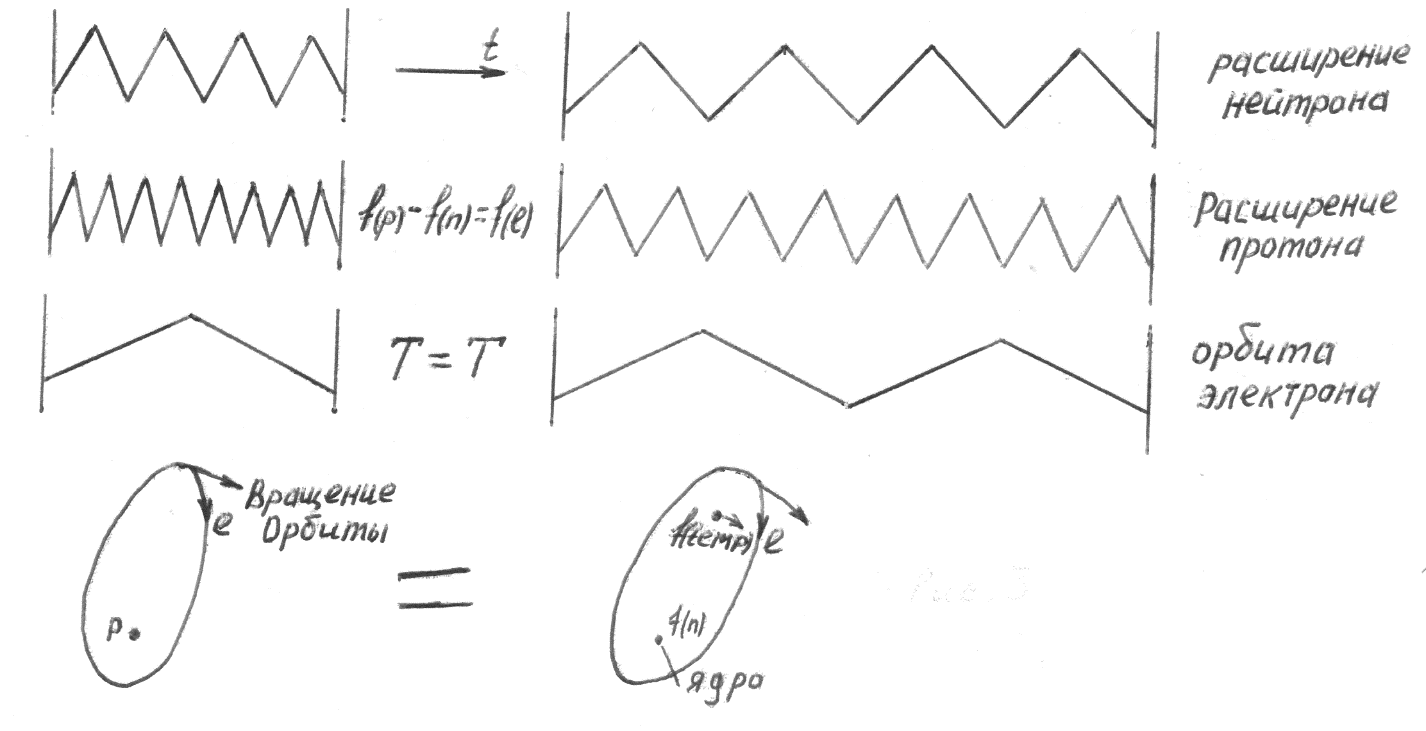 t
расширение
нейтрона
f(p)-f(n)=f(e)
Расширение
протона
T=T
орбита
электрона
Вращение
Орбиты
e
p
=
e
f(n)
ядро